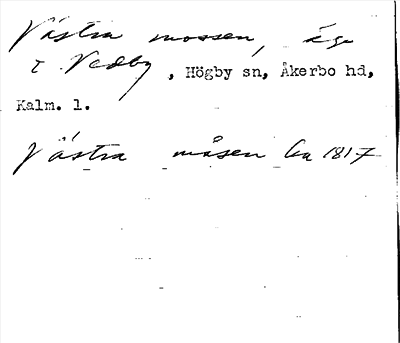 Västra mossen, äga
t. Vedby, Högby sn, Åkerbo hd,
Kalm. l.
Västra måsen Ca 1817